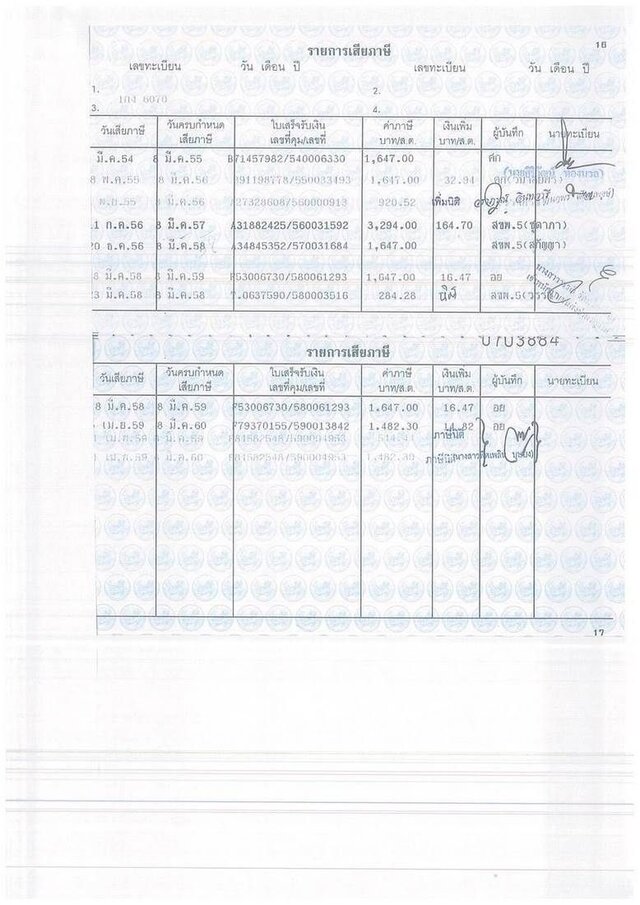 รายการเสียภาษี 16
เลขทะเบียน วัน เดือน ปี เลขทะเบียน วัน เดือน ปี
1. 2.
3. 6070 4.
วันเสียภาษี วันครบกำหนดเสียภาษี ใบเสร็จรับเงินเลขที่คุม/เลขที่ ค่าภาษีบาท/ส.ต. เงินเพิ่มบาท/ส.ต. ผู้บันทึก นายทะเบียน
มี.ค.54 8 มี.ค.55 B71457982/540006330 1,647.00 ศก
8 พ.ค.55 8 มี.ค.56 A91198778/550033493 1,647.00 32.94
พ.ย.55 8 มี.ค.56 A27328608/560000913 920.52 เพิ่มนิติ
11 ก.ค.56 8 มี.ค.57 A31882425/560031592 3,294.00 164.70 สขพ.5(ชุดาภา)
20 ธ.ค.56 8 มี.ค.58 A34845352/570031684 1,647.00 สขพ.5(สุกัญญา)
8 มี.ค.58 8 มี.ค.59 F53006730/580061293 1,647.00 16.47 อย
23 มี.ค.58 8 มี.ค.58 T.0637590/580003516 284.28 สขพ.5
0703884
รายการเสียภาษี
วันเสียภาษี วันครบกำหนดเสียภาษี ใบเสร็จรับเงินเลขที่คุม/เลขที่ ค่าภาษีบาท/ส.ต. เงินเพิ่มบาท/ส.ต. ผู้บันทึก นายทะเบียน
8 มี.ค.58 8 มี.ค.59 F53006730/580061293 1,647.00 16.47 อย
เม.ย.59 8 มี.ค.60 F79370155/590013842 1,482.30 อย
เม.ย.58 8 มี.ค.59 F81582548/590004963 ภาษีนิติ
เม.ย.59 8 มี.ค.60 F81582548/590004963 1,482.30
17